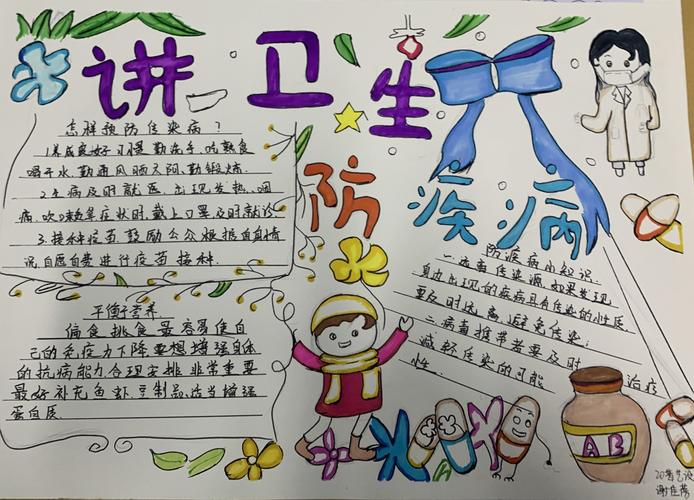 讲卫生
防疾病
怎样预防传染病？
1.养成良好习惯，勤洗手，吃熟食
喝开水，勤通风晒太阳，勤锻炼。
2.生病及时就医，出现发热，咽
痛，咳嗽等症状时，戴上口罩及时就诊
3.接种疫苗，鼓励公众根据自身情
况自愿自费进行疫苗接种.
平衡营养.
偏食、挑食最容易使自
己的免疫力下降，要想增强自体
的抗病能力合理安排非常重要
最好补充鱼、虾、豆制品,适当增强
蛋白质.
防疾病小知识.
一.远离传染源,如果发现
身边出现的疾病具有传染的性质.
要及时远离,避免传染；
二.病毒携带者要及时治疗
减轻传染的可能
性.
AB